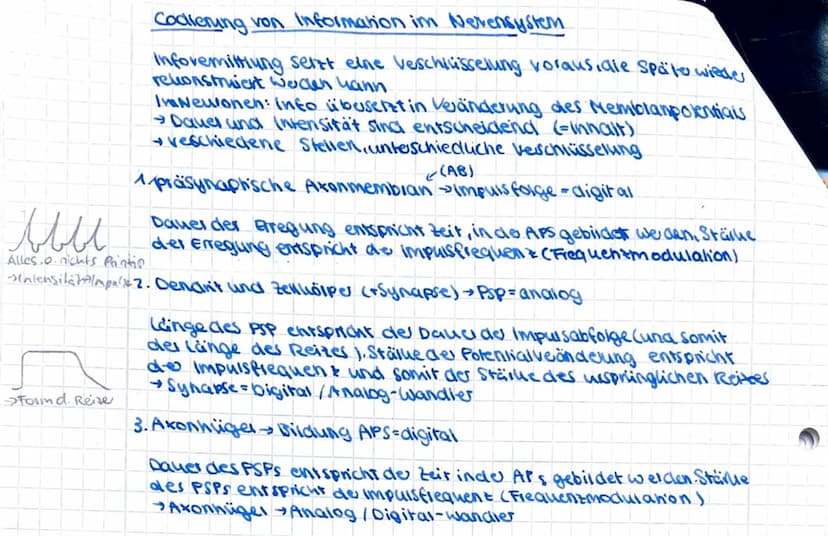 Codierung von Information im Nervensystem
Infovermittlung setzt eine Verschlüsselung voraus, die später wieder
rekonstruiert werden kann
In Neuronen: Info übersetzt in Veränderung des Membranpotentials
→ Dauer und Intensität sind entscheidend (=Inhalt)
→ verschiedene Stellen, unterschiedliche Verschlüsselung
(AB)
1. präsynaptische Axonmembran → Impulsfolge = digital
Dauer der Erregung entspricht Zeit, in der APs gebildet werden, Stärke
der Erregung entspricht der Impulsfrequenz (Frequenzmodulation)
Alles o. nichts Prinzip
→ Intensität
2. Dendrit und Zellkörper (+Synapse) → PSP = analog
Länge des PSP entspricht der Dauer der Impulsabfolge (und somit
der Länge des Reizes), Stärke der Potentialveränderung entspricht
der Impulsfrequenz und somit der Stärke des ursprünglichen Reizes
→ Synapse = Digital / Analog-Wandler
→ Form d. Reize
3. Axonhügel → Bildung APs = digital
Dauer des PSPs entspricht der Zeit in der APs gebildet werden. Stärke
des PSPs entspricht der Impulsfrequenz (Frequenzmodulation)
→ Axonhügel → Analog / Digital-Wandler